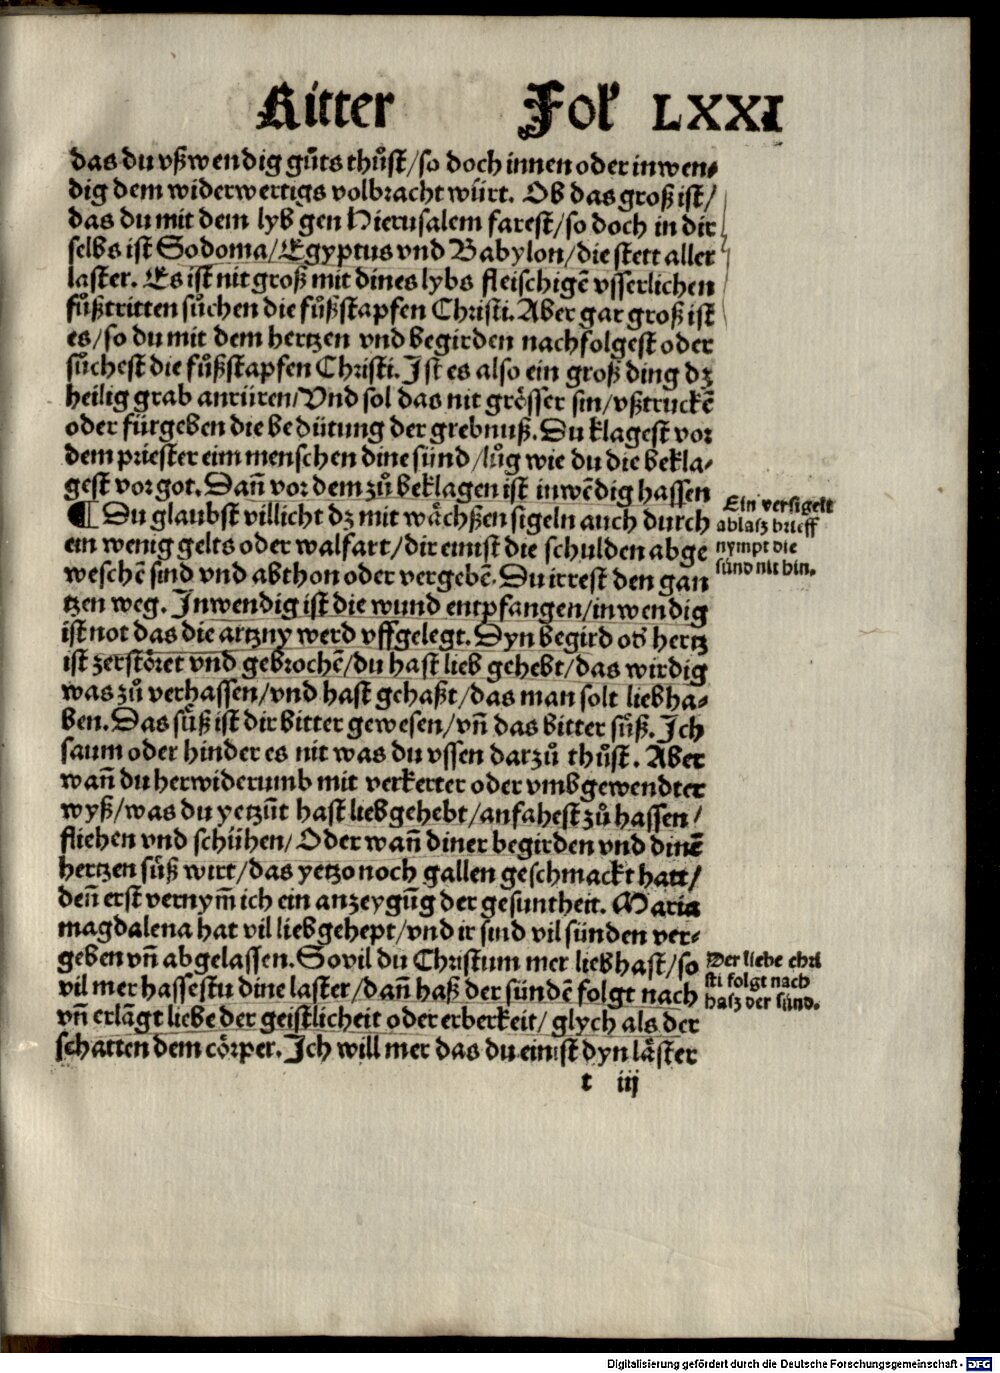 Ritter Fol LXXI
das du vßwendig gůts thůst/so doch innen oder inwen-
dig dem widerwertigs volbracht würt. Ob das groß ist/
das du mit dem lyb gen Hierusalem farest/so doch in dir
selbs ist Sodoma/Egyptus vnd Babylon/die stett aller
laster. Es ist nit groß mit dines lybs fleischigē vsserlichen
fůßtritten sůchen die fůßstapfen Christi. Aber gar groß ist
es/so du mit dem hertzen vnd begirden nachfolgest oder
sůchest die fůßstapfen Christi. Ist es also ein groß ding dz
heilig grab anrüren/Vnd sol das nit grösser sin/vßtruckē
oder fürgeben die bedütung der grebnuß. Du klagest vor
dem priester eim menschen dine sünd/lůg wie du die bekla-
gest vor got. Dañ vor dem zů beklagen ist inwēdig hassen
¶ Du glaubst villicht dz mit wächßen sigeln auch durch
ein wenig gelts oder walfart/dir einist die schulden abge
weschē sind vnd abthon oder vergebē. Du irrest den gan
tzen weg. Inwendig ist die wund entpfangen/inwendig
ist not das die artzny werd vffgelegt. Dyn begird od' hertz
ist zerstöret vnd gebrochē/du hast lieb gehebt/das wirdig
was zů verhassen/vnd hast gehaßt/das man solt liebha-
ben. Das süß ist dir bitter gewesen/vñ das bitter süß. Ich
saum oder hinder es nit was du vssen darzů thůst. Aber
wañ du herwiderumb mit verkerter oder vmbgewendter
wyß/was du yetzūt hast liebgehebt/anfahest zů hassen/
fliehen vnd schühen/Oder wañ diner begirden vnd dinē
hertzen süß wirt/das yetzo noch gallen geschmackt hatt/
deñ erst vernym̄ ich ein anzeygūg der gesuntheit. Maria
magdalena hat vil liebgehept/vnd ir sind vil sünden ver-
geben vñ abgelassen. Sovil du Christum mer liebhast/so
vil mer hassestu dine laster/dañ haß der sündē folgt nach
vñ erlāgt liebe der geistlicheit oder erberkeit/glych als der
schatten dem cörper. Ich will mer das du einist dyn läster
t iij
Ein versigelt
ablasz brieff
nympt die
sünd nit hin.
Der liebe chri
sti folgt nach
hasz der sünd.
Digitalisierung gefördert durch die Deutsche Forschungsgemeinschaft - DFG